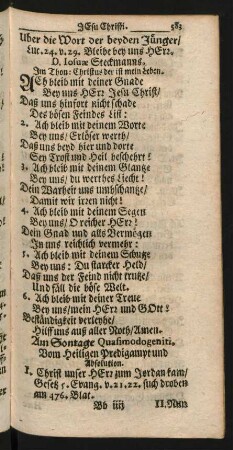 JEsu Christi. 583
Uber die Wort der beyden Jünger/
Luc. 24. v. 29. Bleibe bey uns HErr.
D. Josuæ Stegmanns,
Im Thon: Christus der ist mein Leben.
ACh bleib mit deiner Gnade
Bey uns HErr Jesu Christ/
Daß uns hinfort nicht schade
Des bösen Feindes List:
2. Ach bleib mit deinem Worte
Bey uns/ Erlöser werth/
Daß uns beyd hier und dorte
Sey Trost und Heil beschehrt!
3. Ach bleib mit deinem Glantze
Bey uns/ du werthes Liecht!
Dein Warheit uns umbschantze/
Damit wir irren nicht!
4. Ach bleib mit deinem Segen
Bey uns/ O reicher HErr!
Dein Gnad und alls Vermögen
In uns reichlich vermehr:
5. Ach bleib mit deinem Schutze
Bey uns: Du starcker Held/
Daß uns der Feind nicht trutze/
Und fäll die böse Welt.
6. Ach bleib mit deiner Treue
Bey uns/ mein HErr und GOtt!
Beständigkeit verleyhe/
Hilff uns auß aller Noth/ Amen.
Am Sontage Quasimodogeniti.
Vom Heiligen Predigampt und
Absolution.
1. Christ unser HErr zum Jordan kam/
Gesetz 5. Evang. v. 21. 22. such droben
am 476. Blat.
Bb iiij II. Nun